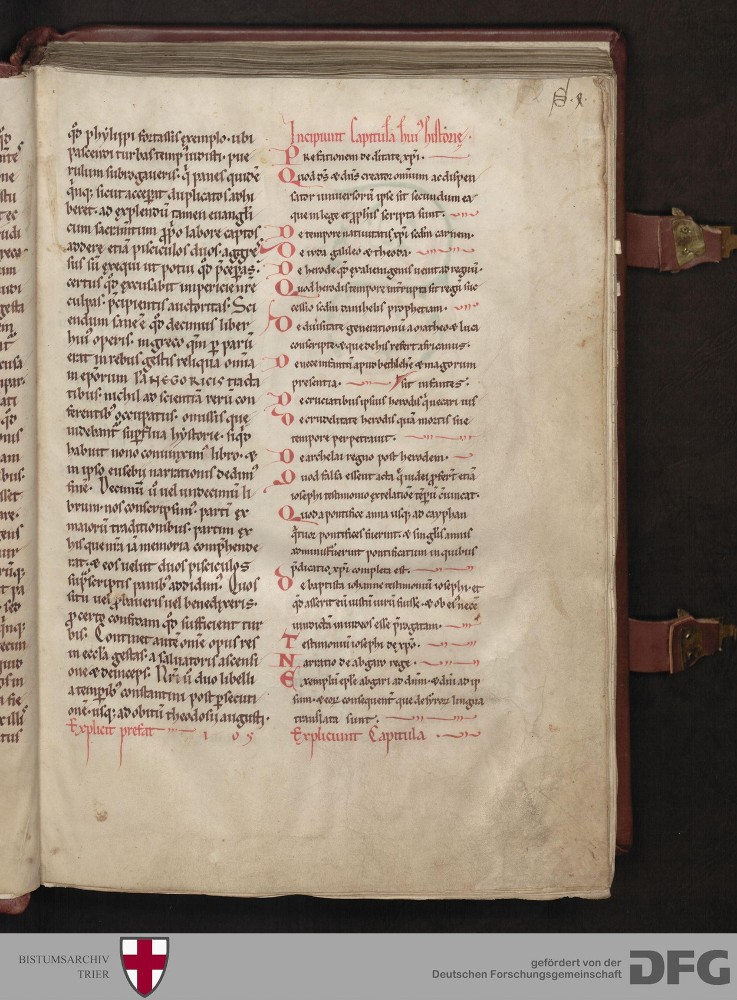 qd phylippi fortassis exemplo. ubi
pascendi turbas temp iudisti. pue
rulum subrogaueris. q panes quidē
quq; sicut acceperat. duplicatos adhi
beret. ad explendū tamen euangeli
cum sacramtum ppo labore captos
addere etiā pisciculos duos. aggres
sus sū exequi ut potui qd pceperas.
certus qd excusabit impericie nre
culpas. pcipientis auctoritas. Sci
endum sane ē qd decimus liber
hui operis. in greco qm p parū
erat in rebus gestis reliqua omīa
in eporum PANEGORICIS tracta
tibus. nichil ad scientiā rerū con
ferentib occupatus. omissis que
uidebant supflua hystorie. siqd
habuit nono coniunximus libro. &
in ipso eusebij narrationis dedim
finē. Decimū ū uel undecimū li
brum nos conscripsim partī ex
maiorū traditionibus. partim ex
his que nra iā memoria comphende
rat. & eos uelut duos pisciculos
supscriptis panib addidim. Quos
situ uel pbaueris uel benedixeris.
p certo confidam qd sufficient tur
bis. Continet autē omē opus res
in eccla gestas. a saluatoris ascensi
one & deinceps. Nri ū duo libelli
a temporib constantini post persecuti
onē. usq; ad obitū theodosii augusti.
Explicit prefat
S. x.
Incipiunt Capitula hui historie.
Prefationem de diitate xpi.
Quod ds & dns creator omnium ac dispen
sator uniuersorū ipse sit secundum ea
que in lege et pphis scripta sunt.
De tempore natiuitatis xpi scdm carnem.
De iuda galileo & theoda.
De herode qd ex alienigenis uenit ad regnū.
Quod herodis tempore intrupta sit regū suc
cessio scdm danihelis prophetiam.
De diuisitate generationū a matheo & luca
conscripte & que de his refert africanus.
De nece infantū apud bethleem & magorum
presentia. sut infantes.
De cruciatibus ipsius herodis q necari uis
De crudelitate herodis quā mortis sue
tempore perpetrauit.
De archelai regno post herodem.
Quod falsa essent acta q iudei pferūt etiā
iosephi testimonio ex relatiōe tēpū cōuincat.
Quod a pontifice anna usq; ad cayphan
qtuor pontifices fuerunt. & singlis annis
administrauerunt pontificatum in quibus
pdicatio xpi completa est.
De baptista iohanne testimoniū iosephi. et
qd asserit eū iustū uirū fuisse. & ob ei necē
uindictā in iudeos esse progatam.
Testimoniū iosephi de xpo.
Narratio de abgaro rege.
Exemplū eple abgari ad dnm. & dni ad ip
sum. & eor consequent que de syror lingua
translata sunt.
Expliciunt Capitula
BISTUMSARCHIV
TRIER
gefördert von der
Deutschen Forschungsgemeinschaft
DFG